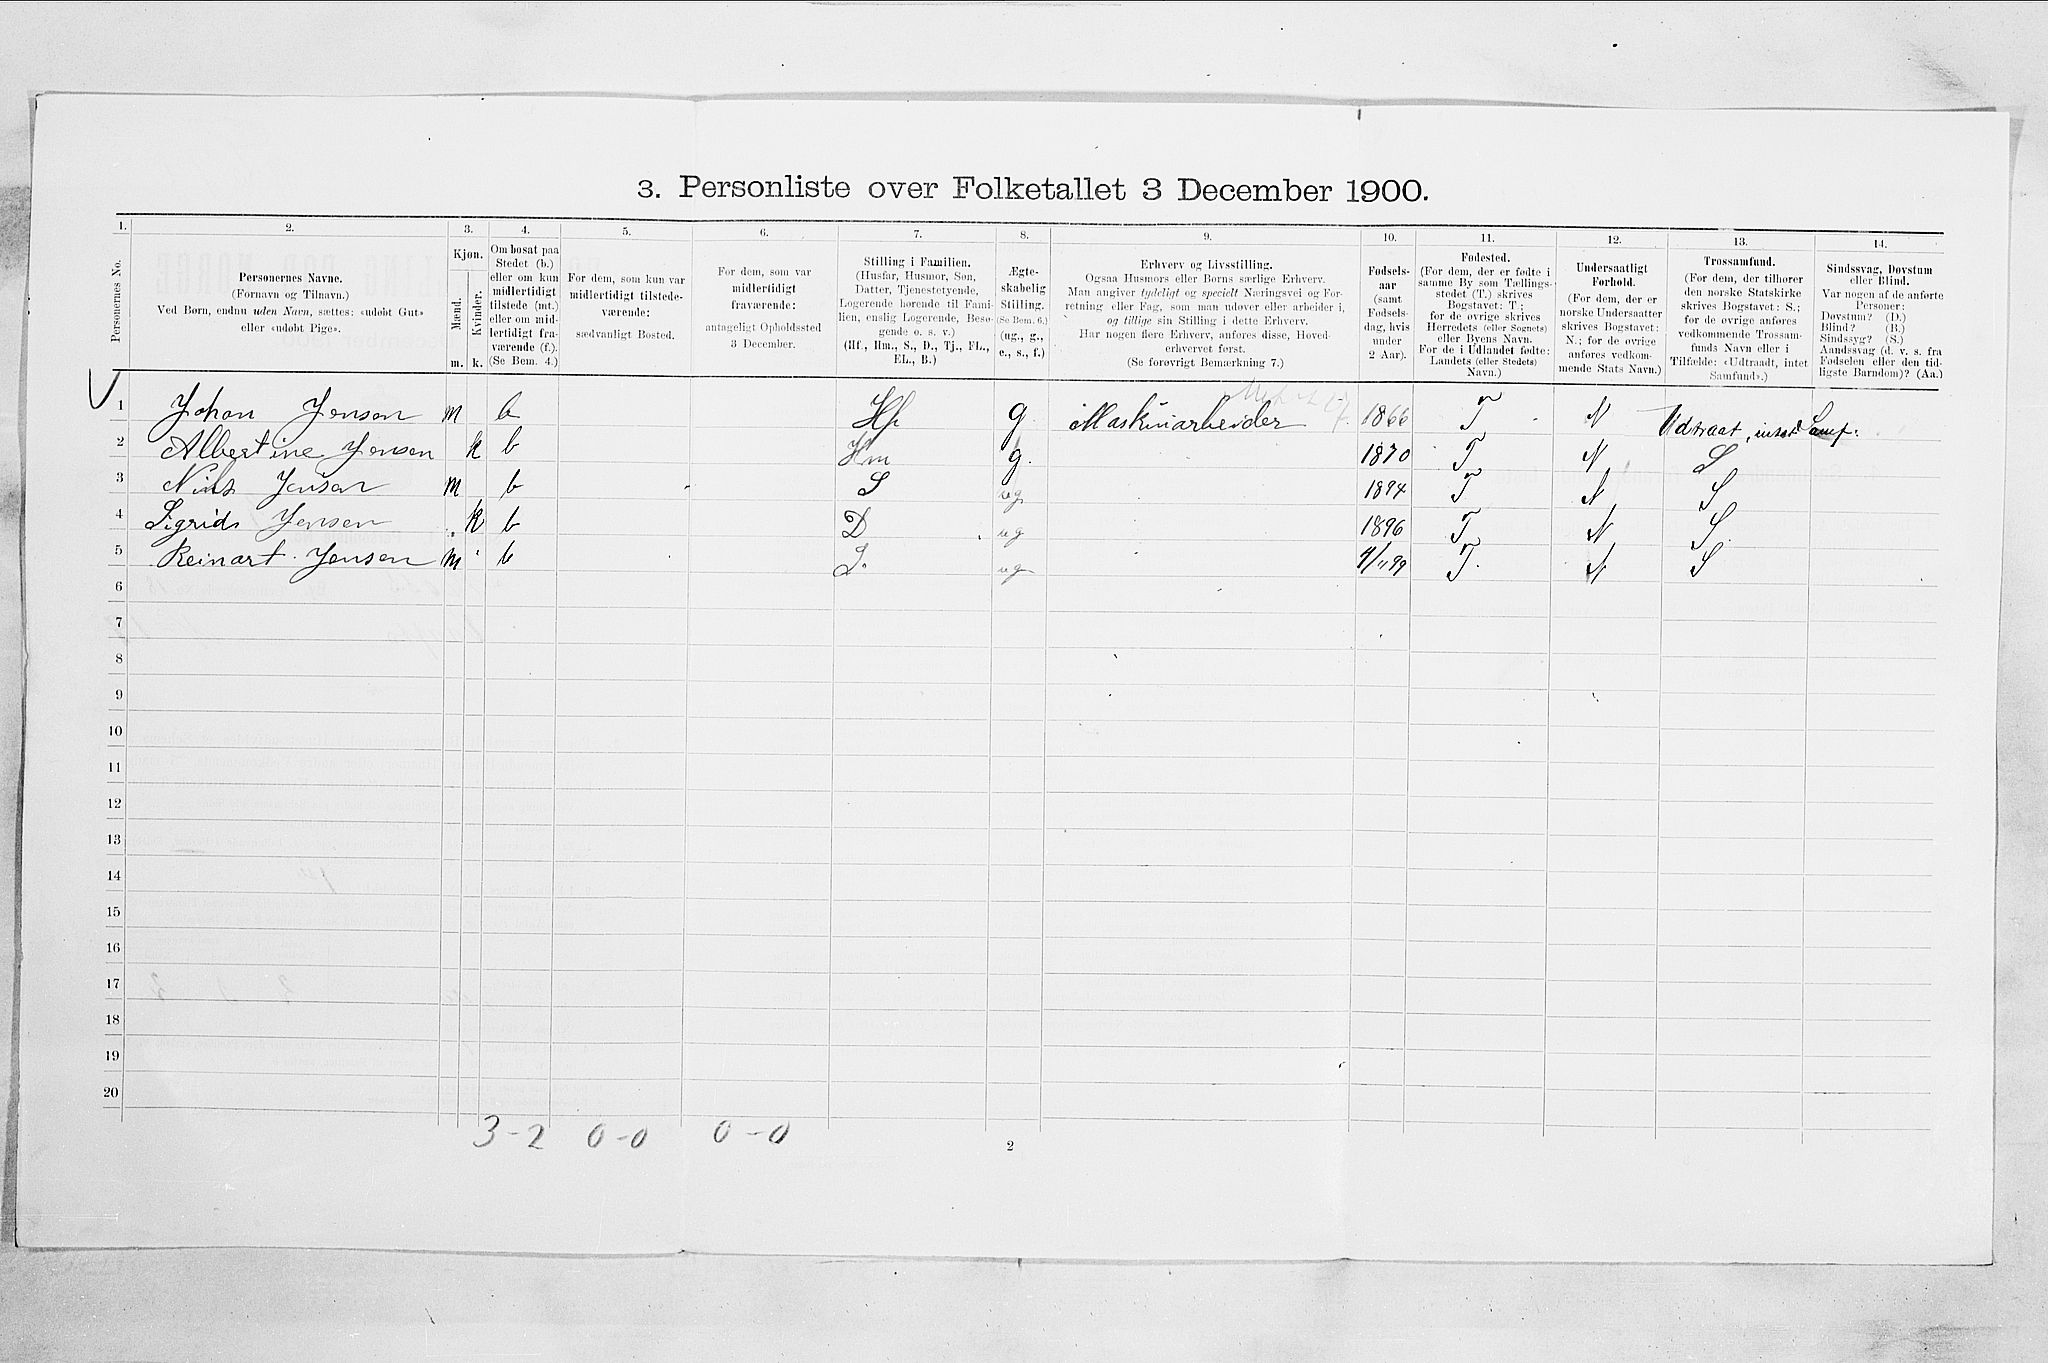 3. Personliste over Folketallet 3 December 1900.
1. 2. 3. 4. 5. 6. 7. 8. 9. 10. 11. 12. 13. 14.
Personernes No.
Personernes Navne.
(Fornavn og Tilnavn.)
Ved Børn, endnu uden Navn, sættes: «udøbt Gut»
eller «udøbt Pige».
Kjøn.
Mænd.
Kvinder.
m. k.
Om bosat paa
Stedet (b.)
eller om kun
midlertidigt
tilstede (mt.)
eller om mid-
lertidigt fra-
værende (f.).
(Se Bem. 4.)
For dem, som kun var
midlertidigt tilstede-
værende:
sædvanligt Bosted.
For dem, som var
midlertidigt
fraværende:
antageligt Opholdssted
3 December.
Stilling i Familien.
(Husfar, Husmor, Søn,
Datter, Tjenestetyende,
Logerende hørende til Fami-
lien, enslig Logerende, Besø-
gende o. s. v.)
(Hf., Hm., S., D., Tj., FL.,
EL., B.)
Ægte-
skabelig
Stilling.
(Se Bem. 6.)
(ug., g.,
e., s., f.)
Erhverv og Livsstilling.
Ogsaa Husmors eller Børns særlige Erhverv.
Man angiver tydeligt og specielt Næringsvei og For-
retning eller Fag, som man udøver eller arbeider i,
og tillige sin Stilling i dette Erhverv.
Har nogen flere Erhverv, anføres disse, Hoved-
erhvervet først.
(Se forøvrigt Bemærkning 7.)
Fødsels-
aar
(samt
Fødsels-
dag, hvis
under
2 Aar).
Fødested.
(For dem, der er fødte i
samme By som Tællings-
stedet (T.) skrives
Bogstavet: T;
for de øvrige skrives
Herredets (eller Sognets)
eller Byens Navn.
For de i Udlandet fødte:
Landets (eller Stedets)
Navn.)
Undersaatligt
Forhold.
(For dem, der er
norske Undersaatter
skrives Bogstavet:
N.; for de øvrige
anføres vedkom-
mende Stats Navn.)
Trossamfund.
(For dem, der tilhører
den norske Statskirke
skrives Bogstavet: S.;
for de øvrige anføres
vedkommende Trossam-
funds Navn eller i
Tilfælde: «Udtraadt, intet
Samfund».)
Sindssvag, Døvstum
eller Blind.
Var nogen af de anførte
Personer:
Døvstum? (D.)
Blind? (B.)
Sindssyg? (S.)
Aandssvag (d. v. s. fra
Fødselen eller den tid-
ligste Barndom)? (Aa.)
1 Johan Jensen m b Hf g Maskinarbeider 1866 T N Udtraat, intet Samf.
2 Albertine Jensen k b Hm g. 1870 T N S
3 Nils Jensen m b S ug 1894 T N S
4 Sigrid Jensen k b D ug 1896 T N S.
5 Reinart Jensen m b S. ug 4/11 99 T. N S
6
7
8
9
10
11
12
13
14
15
16
17
18
19
20
3-2 0-0 0-0
2